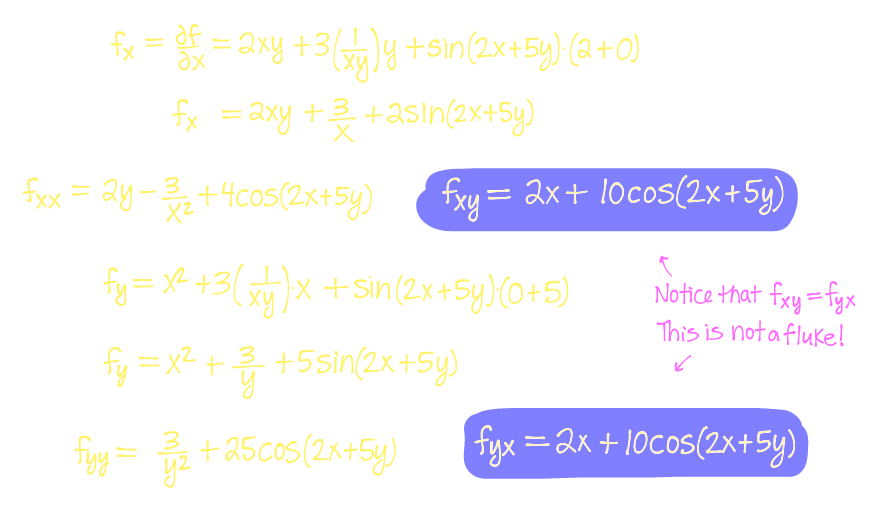 fx = ∂f/∂x = 2xy + 3(1/xy)y + sin(2x+5y)·(2+0)
fx = 2xy + 3/x + 2sin(2x+5y)
fxx = 2y − 3/x² + 4cos(2x+5y)
fxy = 2x + 10cos(2x+5y)
fy = x² + 3(1/xy)·x + sin(2x+5y)·(0+5)
Notice that fxy = fyx
This is not a fluke!
fy = x² + 3/y + 5sin(2x+5y)
fyy = 3/y² + 25cos(2x+5y)
fyx = 2x + 10cos(2x+5y)